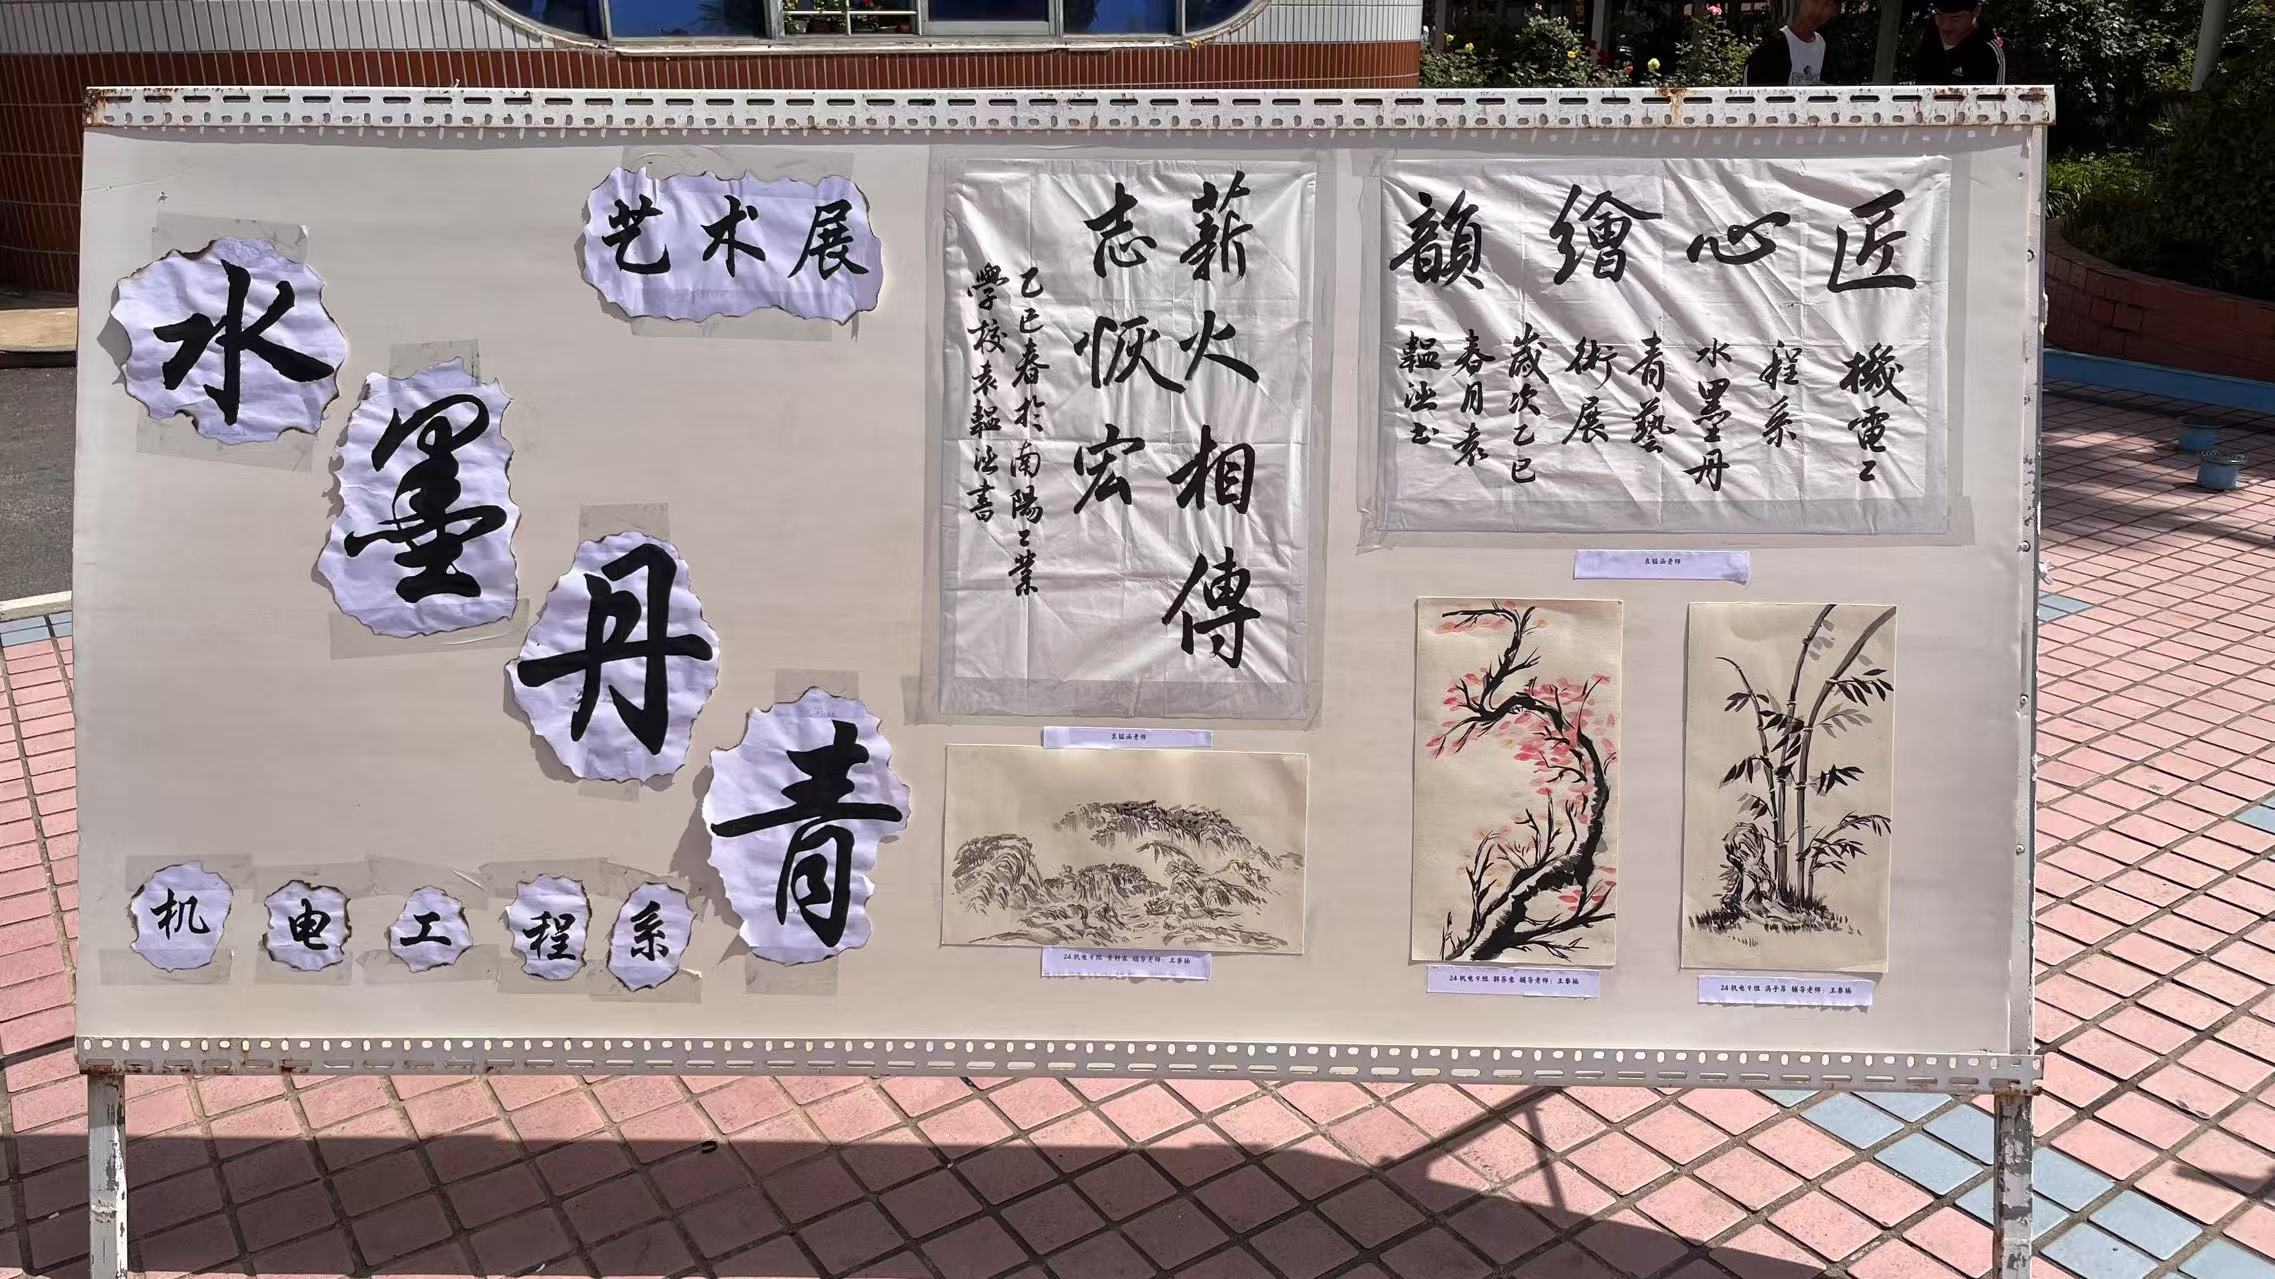 艺术展
水墨丹青
机电工程系
薪火相传
志恢宏
乙巳春於南陽工業
學校袁韫涵書
袁韫涵老师
24机电9班 辅导老师：王黎杨
匠心繪韻
機電工
程系
水墨丹
青藝
術展
歲次乙巳
春月袁
韞涵书
袁韫涵老师
24机电9班 郭苏豪 辅导老师：王黎杨
24机电9班 冯子昂 辅导老师：王黎杨